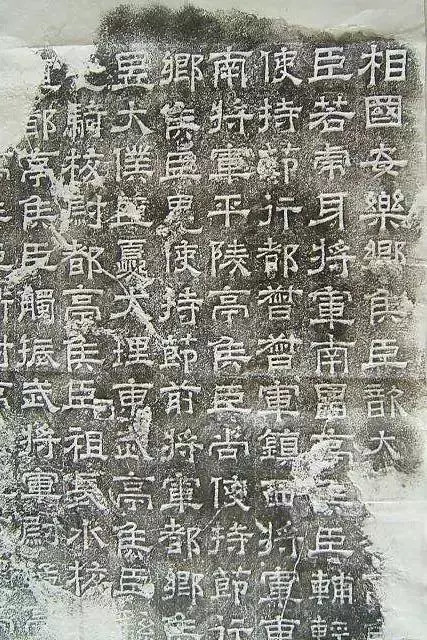 相國安樂鄉侯臣歆大
臣若虎牙將軍南昌亭侯臣輔輕
使持節行都督督軍鎮西將軍東
南將軍平陵亭侯臣尚使持節行
鄉侯臣晃使持節前將軍都鄉侯
昱大僕臣夔大理東武亭侯臣
騎校尉都亭侯臣祖長水校
都亭侯臣觸振武將軍尉